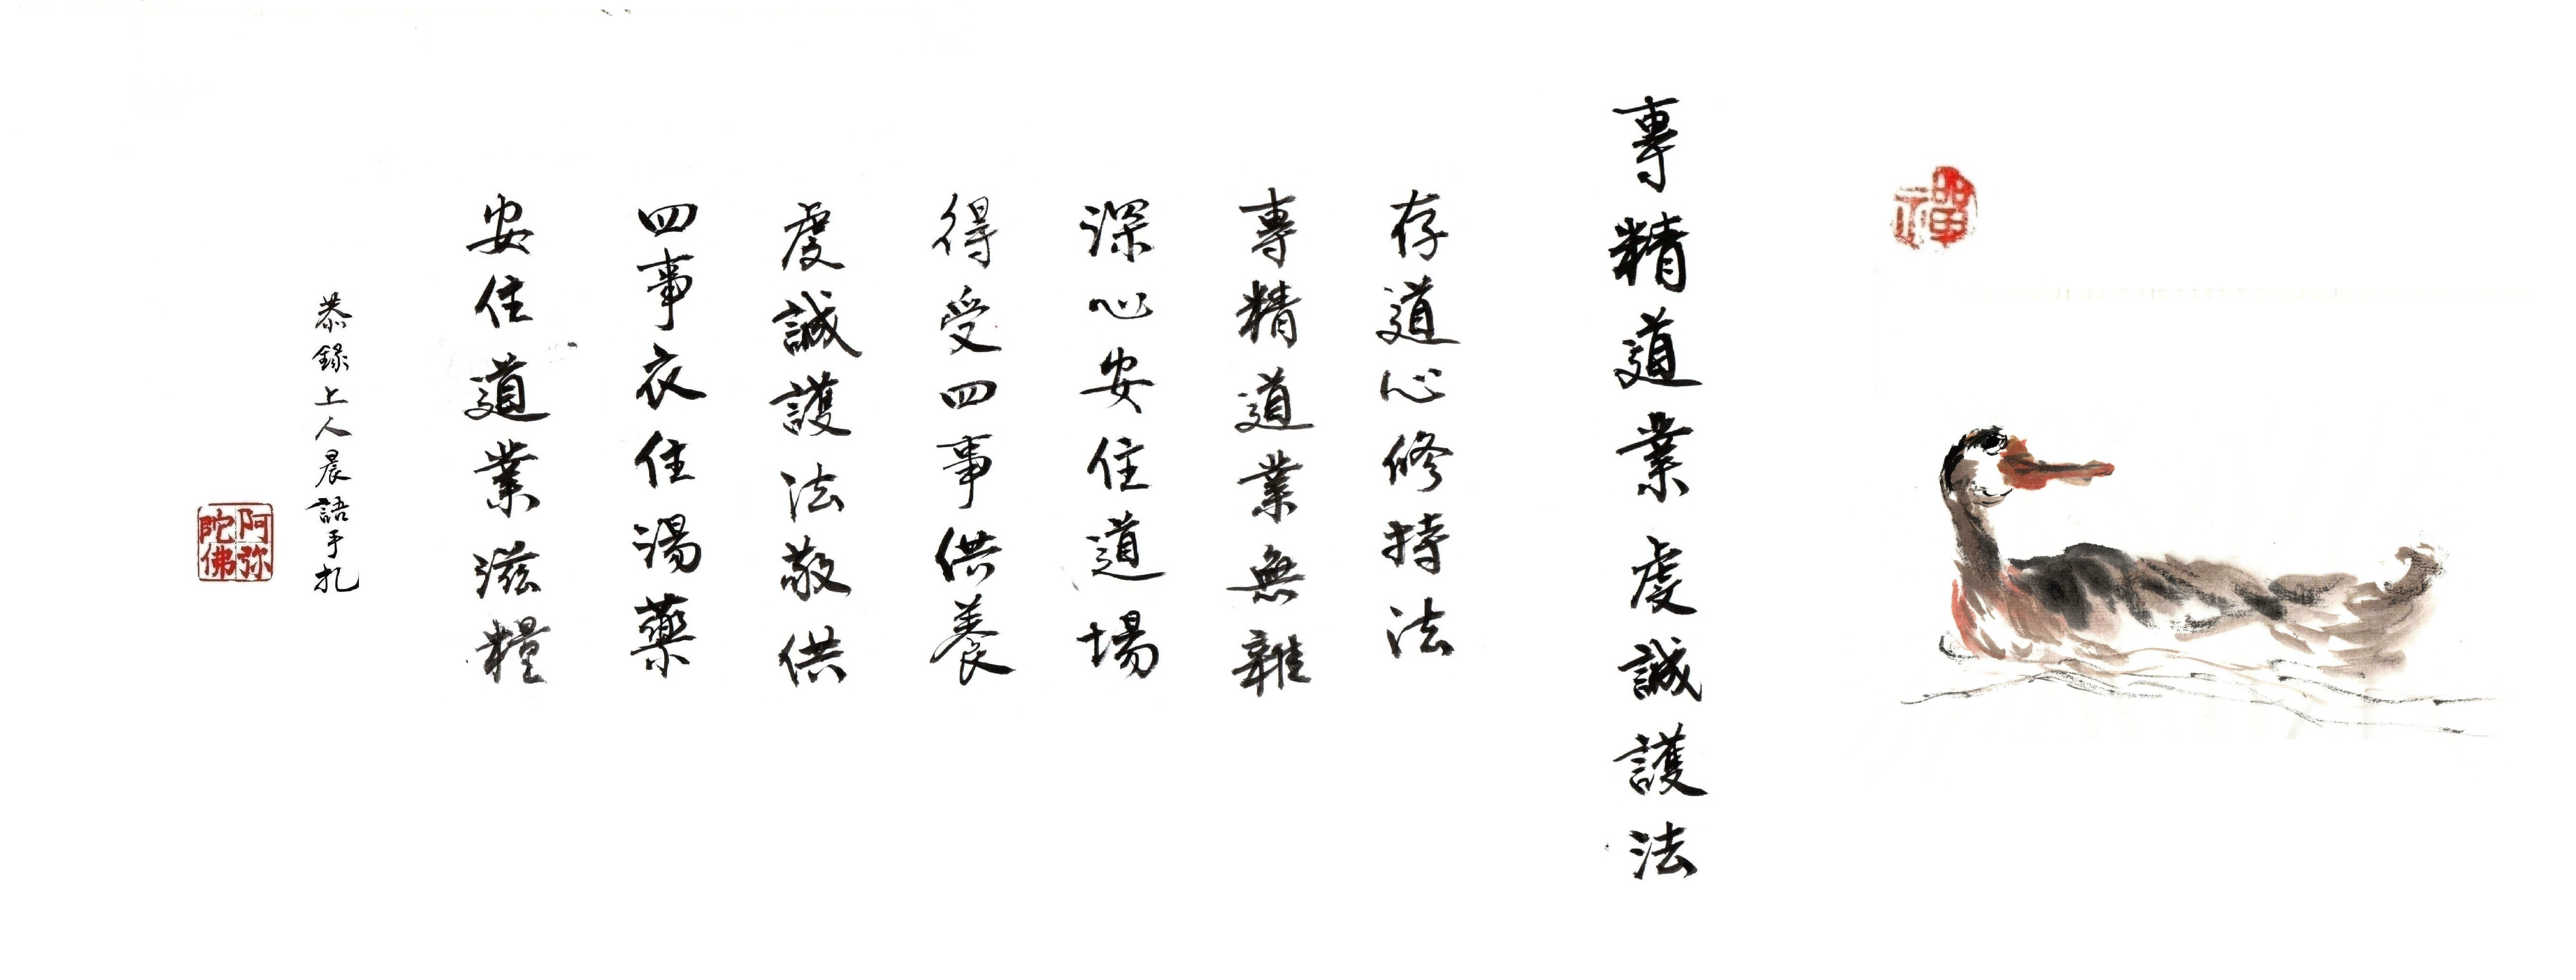 禪
專精道業虔誠護法
存道心修持法
專精道業無雜
深心安住道場
得受四事供養
虔誠護法敬供
四事衣住湯藥
安住道業滋糧
恭錄上人晨語手札
阿弥陀佛